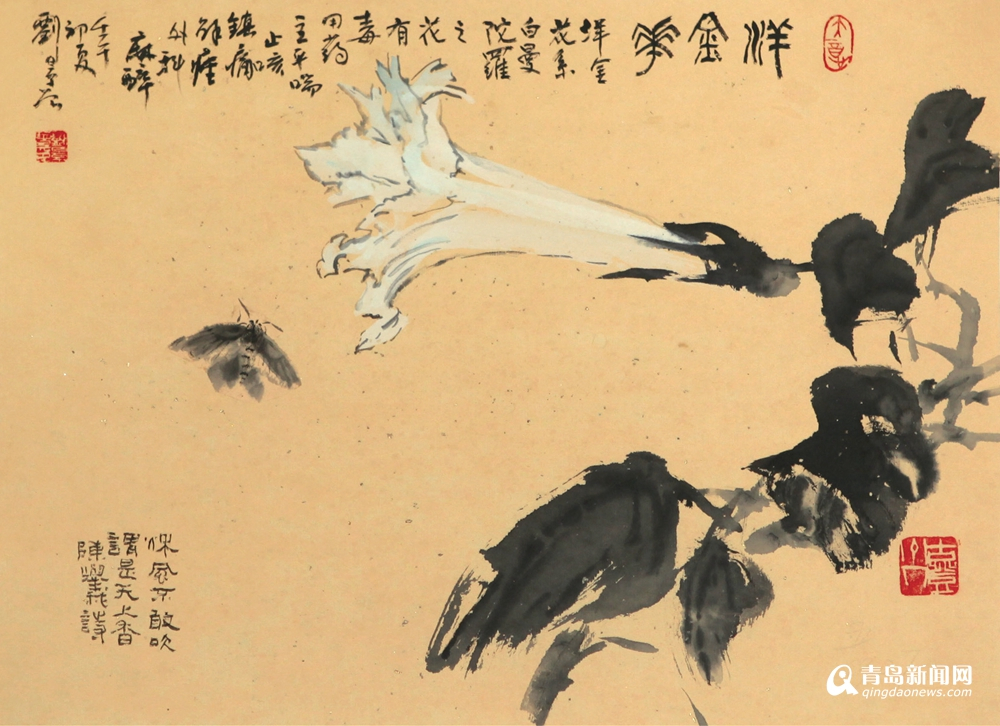 洋金花
洋金
花系
白曼
陀羅
之
花
有
毒
用药
主平喘
止咳
鎮痛
解痙
外科
麻醉
壬午
初夏
劉
風不敢吹
謂是天上香
陳與義詩
青岛新闻网
qingdaonews.com